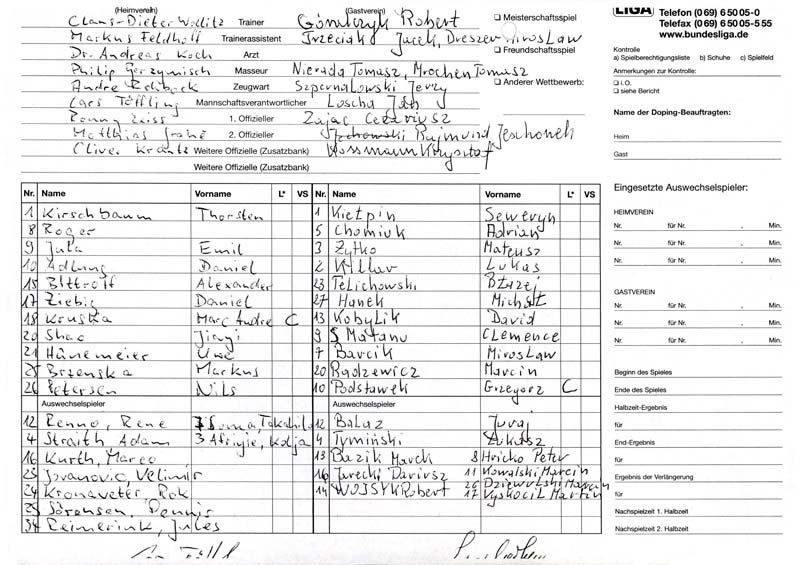 (Heimverein) (Gastverein)
Claus-Dieter Wollitz Trainer Gómłczyk Robert
Markus Feldhoff Trainerassistent Trzeciak Jacek, Dreszer Mirosław
Dr. Andreas Koch Arzt
Philip Perzymisch Masseur Nierada Tomasz, Mrochen Tomasz
Andre Rehbock Zeugwart Szpernalowski Jerzy
Lars Töffling Mannschaftsverantwortlicher Loscha
Ronny Zeiss 1. Offizieller Zając Cezariusz
Matthias 2. Offizieller Rajmund Jeschonek
Oliver Krantz Weitere Offizielle (Zusatzbank) Wossmann Krzysztof
Weitere Offizielle (Zusatzbank)
Meisterschaftsspiel
Freundschaftsspiel
Anderer Wettbewerb:
LIGA Telefon (0 69) 6 50 05-0
Telefax (0 69) 6 50 05-5 55
www.bundesliga.de
Kontrolle
a) Spielberechtigungsliste b) Schuhe c) Spielfeld
Anmerkungen zur Kontrolle:
i.O.
siehe Bericht
Name der Doping-Beauftragten:
Heim
Gast
Nr. Name Vorname L* VS Nr. Name Vorname L* VS
1 Kirschbaum Thorsten 1 Kietpin Seweryn
8 Roger 5 Chomiuk Adrian
9 Jula Emil 3 Żytko Mateusz
10 Adlung Daniel 2 Killar Lukas
15 Bittroff Alexander 23 Telichowski Błażej
17 Ziebig Daniel 27 Hanek Michał
18 Kruska Marc Andre C 13 Kobylik David
20 Shao Jiayi 9 S Matanu Clemence
21 Hünemeier Uwe 7 Barcik Mirosław
25 Brzenska Markus 20 Radzewicz Marcin
26 Petersen Nils 10 Podstawek Grzegorz C
Auswechselspieler Auswechselspieler
12 Renno, Rene 7 Soma, Takahito 12 Balaz Juraj
4 Straith Adam 3 Afriyie, Kolja 4 Tymiński Łukasz
16 Kurth, Marco 13 Bazik Marek 8 Hricko Peter
23 Jovanovic, Velimir 16 Jarecki Dariusz 11 Kowalski Marcin
24 Kronaveter, Rok 14 WOJSYK Robert 26 Dziewulski Marcin
29 Sörensen, Dennis 17 Vyskocil Martin
34 Reimerink, Jules
Eingesetzte Auswechselspieler:
HEIMVEREIN
Nr. für Nr. , Min.
Nr. für Nr. , Min.
Nr. für Nr. , Min.
GASTVEREIN
Nr. für Nr. , Min.
Nr. für Nr. , Min.
Nr. für Nr. , Min.
Beginn des Spieles
Ende des Spieles
Halbzeit-Ergebnis
für
End-Ergebnis
für
Ergebnis der Verlängerung
für
Nachspielzeit 1. Halbzeit
Nachspielzeit 2. Halbzeit